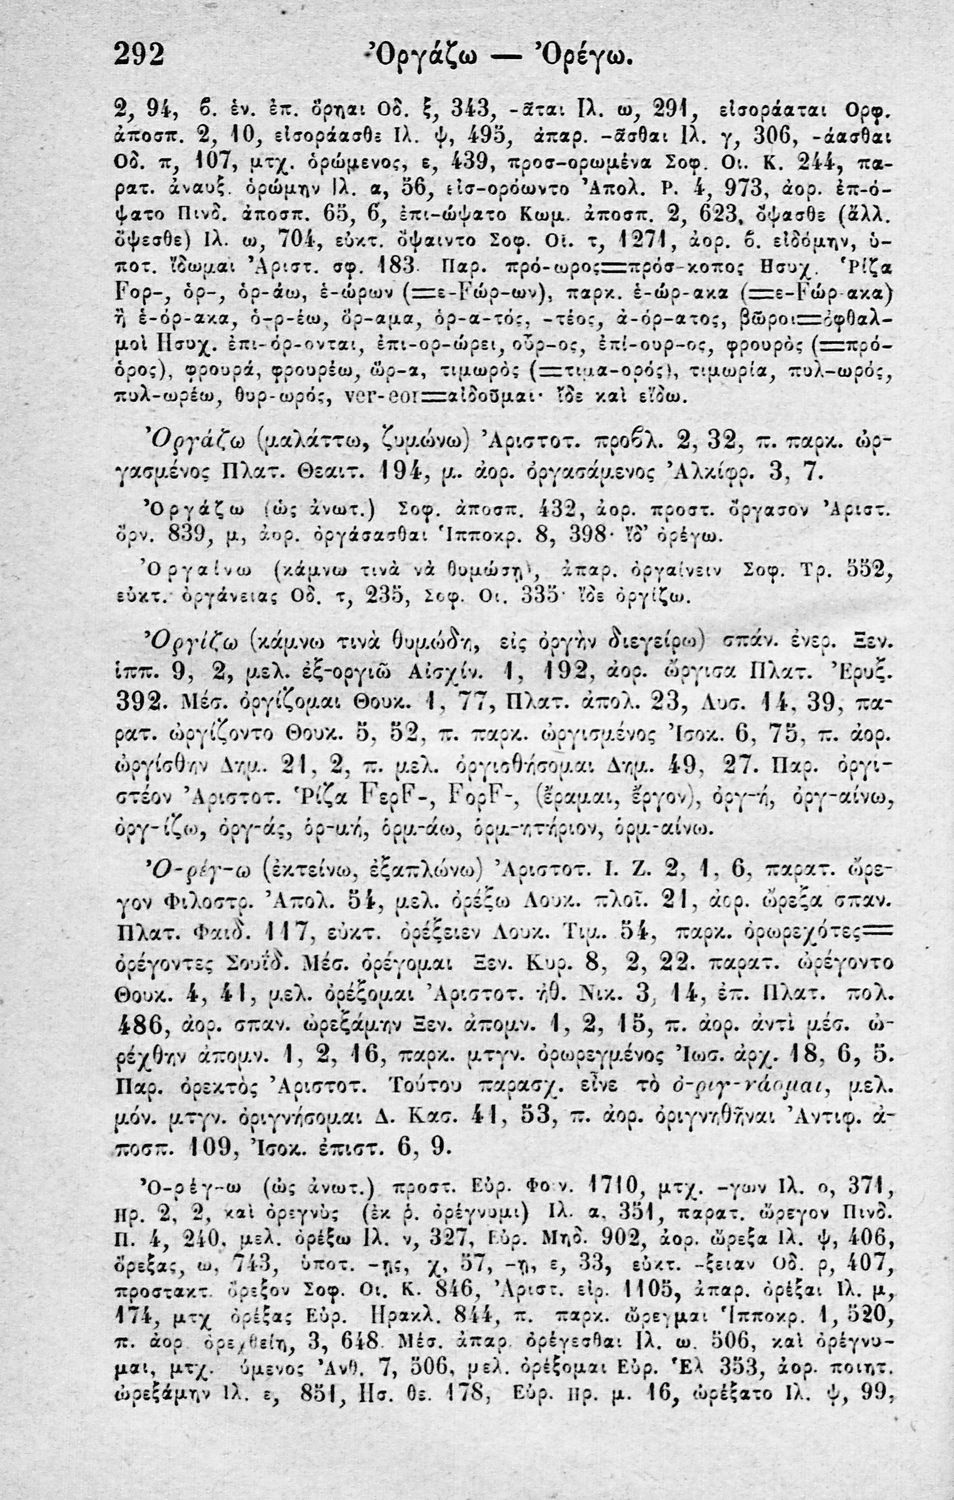 292 Ὀργάζω — Ὀρέγω.
2, 94, β. ἑν. ἐπ. ὅρηαι Οδ. ξ, 343, -ᾶται Ιλ. ω, 291, εἰσοράαται Ορφ.
ἀποσπ. 2, 10, εἰσοράασθε Ιλ. ψ, 495, ἀπαρ. -ᾶσθαι Ιλ. γ, 306, -άασθαι
Οδ. π, 107, μτχ. ὁρώμενος, ε, 439, προσ-ορωμένα Σοφ. Οι. Κ. 244, πα-
ρατ. ἀναυξ. ὁρώμην Ιλ. α, 56, εἰσ-ορόωντο Ἀπολ. Ρ. 4, 973, ἀορ. ἐπ-ό-
ψατο Πινδ. ἀποσπ. 65, 6, ἐπι-ώψατο Κωμ. ἀποσπ. 2, 623, ὄψασθε (ἄλλ.
ὄψεσθε) Ιλ. ω, 704, εὐκτ. ὄψαιντο Σοφ. Οἰ. τ, 1271, ἀορ. β. εἰδόμην, ὑ-
ποτ. ἴδωμαι Ἀριστ. σφ. 183. Παρ. πρό-ωρος=πρόσ-κοπος Ησυχ. Ῥίζα
Fορ-, ὁρ-, ὁρ-άω, ἑ-ώρων (=ε-Fώρ-ων), παρκ. ἑ-ώρ-ακα (=ε-Fώρ-ακα)
ἢ ἑ-όρ-ακα, ὁ-ρ-έω, ὅρ-αμα, ὁρ-α-τός, -τέος, ἀ-όρ-ατος, βῶροι=ὀφθαλ-
μοὶ Ησυχ. ἐπι-όρ-ονται, ἐπι-ορ-ώρει, οὖρ-ος, ἐπί-ουρ-ος, φρουρὸς (=πρό-
ὁρος), φρουρά, φρουρέω, ὤρ-α, τιμωρὸς (=τιμα-ορός), τιμωρία, πυλ-ωρός,
πυλ-ωρέω, θυρ-ωρός, ver-eor=αἰδοῦμαι· ἴδε καὶ εἴδω.
Ὀργάζω (μαλάττω, ζυμώνω) Ἀριστοτ. προβλ. 2, 32, π. παρκ. ὠρ-
γασμένος Πλατ. Θεαιτ. 194, μ. ἀορ. ὀργασάμενος Ἀλκίφρ. 3, 7.
Ὀργάζω (ὡς ἀνωτ.) Σοφ. ἀποσπ. 432, ἀορ. προστ. ὄργασον Ἀριστ.
ὄρν. 839, μ, ἀορ. ὀργάσασθαι Ἱπποκρ. 8, 398· ἴδ' ὀρέγω.
Ὀργαίνω (κάμνω τινὰ νὰ θυμώσῃ), ἀπαρ. ὀργαίνειν Σοφ. Τρ. 552,
εὐκτ. ὀργάνειας Οδ. τ, 235, Σοφ. Οι. 335· ἴδε ὀργίζω.
Ὀργίζω (κάμνω τινὰ θυμώδη, εἰς ὀργὴν διεγείρω) σπάν. ἐνερ. Ξεν.
ἱππ. 9, 2, μελ. ἐξ-οργιῶ Αἰσχίν. 1, 192, ἀορ. ὤργισα Πλατ. Ἐρυξ.
392. Μέσ. ὀργίζομαι Θουκ. 1, 77, Πλατ. ἀπολ. 23, Λυσ. 14, 39, πα-
ρατ. ὠργίζοντο Θουκ. 5, 52, π. παρκ. ὠργισμένος Ἰσοκ. 6, 75, π. ἀορ.
ὠργίσθην Δημ. 21, 2, π. μελ. ὀργισθήσομαι Δημ. 49, 27. Παρ. ὀργι-
στέον Ἀριστοτ. Ῥίζα FερF-, FορF-, (ἔραμαι, ἔργον), ὀργ-ή, ὀργ-αίνω,
ὀργ-ίζω, ὀργ-άς, ὁρ-μή, ὁρμ-άω, ὁρμ-ητήριον, ὁρμ-αίνω.
Ὀ-ρέγ-ω (ἐκτείνω, ἐξαπλώνω) Ἀριστοτ. Ι. Ζ. 2, 1, 6, παρατ. ὤρε-
γον Φιλοστρ. Ἀπολ. 54, μελ. ὀρέξω Λουκ. πλοῖ. 21, ἀορ. ὤρεξα σπαν.
Πλατ. Φαιδ. 117, εὐκτ. ὀρέξειεν Λουκ. Τιμ. 54, παρκ. ὀρωρεχότες=
ὀρέγοντες Σουΐδ. Μέσ. ὀρέγομαι Ξεν. Κυρ. 8, 2, 22. παρατ. ὠρέγοντο
Θουκ. 4, 41, μελ. ὀρέξομαι Ἀριστοτ. ἠθ. Νικ. 3, 14, ἐπ. Πλατ. πολ.
486, ἀορ. σπαν. ὠρεξάμην Ξεν. ἀπομν. 1, 2, 15, π. ἀορ. ἀντὶ μέσ. ὠ-
ρέχθην ἀπομν. 1, 2, 16, παρκ. μτγν. ὀρωρεγμένος Ἰωσ. ἀρχ. 18, 6, 5.
Παρ. ὀρεκτὸς Ἀριστοτ. Τούτου παρασχ. εἶνε τὸ ὀ-ριγ-νάομαι, μελ.
μόν. μτγν. ὀριγνήσομαι Δ. Κασ. 41, 53, π. ἀορ. ὀριγνηθῆναι Ἀντιφ. ἀ-
ποσπ. 109, Ἰσοκ. ἐπιστ. 6, 9.
Ὀ-ρέγ-ω (ὡς ἀνωτ.) προστ. Εὐρ. Φοιν. 1710, μτχ. -γων Ιλ. ο, 371,
Ηρ. 2, 2, καὶ ὀρεγνὺς (ἐκ ῥ. ὀρέγνυμι) Ιλ. α, 351, παρατ. ὤρεγον Πινδ.
Π. 4, 240, μελ. ὀρέξω Ιλ. ν, 327, Εὐρ. Μηδ. 902, ἀορ. ὤρεξα Ιλ. ψ, 406,
ὄρεξας, ω, 743, ὑποτ. -ῃς, χ, 57, -ῃ, ε, 33, εὐκτ. -ξειαν Οδ. ρ, 407,
προστακτ. ὄρεξον Σοφ. Οι. Κ. 846, Ἀριστ. εἰρ. 1105, ἀπαρ. ὀρέξαι Ιλ. μ,
174, μτχ ὀρέξας Εὐρ. Ηρακλ. 844, π. παρκ. ὤρεγμαι Ἱπποκρ. 1, 520,
π. ἀορ ὀρεχθείη, 3, 648. Μέσ. ἀπαρ. ὀρέγεσθαι Ιλ. ω. 506, καὶ ὀρέγνυ-
μαι, μτχ. ύμενος Ἀνθ. 7, 506, μελ. ὀρέξομαι Εὐρ. Ἑλ 353, ἀορ. ποιητ.
ὠρεξάμην Ιλ. ε, 851, Ησ. θε. 178, Εὐρ. Ηρ. μ. 16, ὠρέξατο Ιλ. ψ, 99,